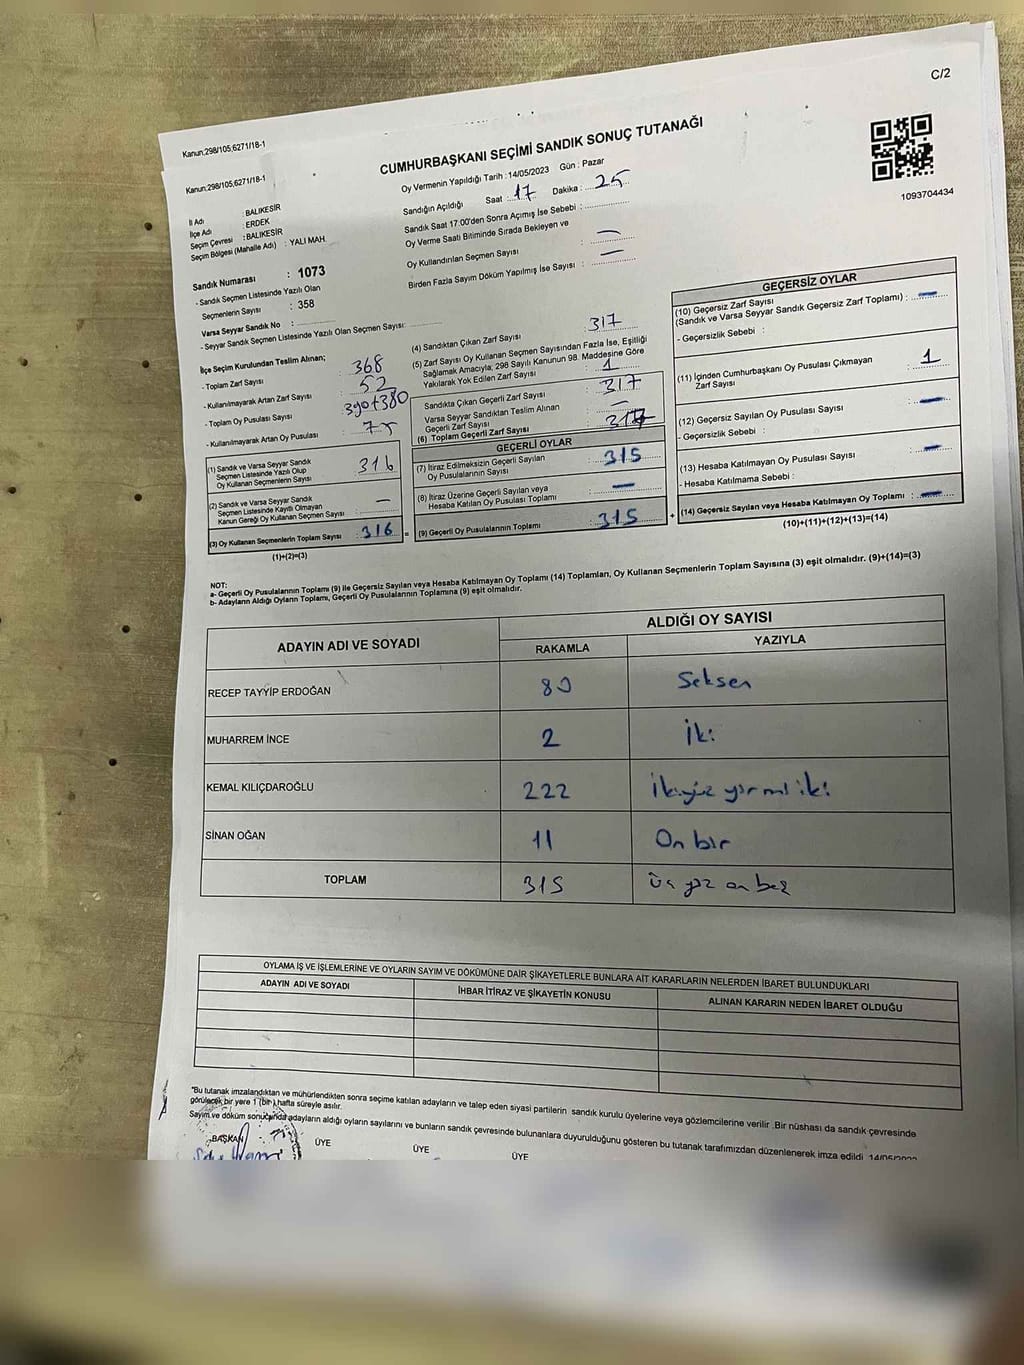 C/2
Kanun:298/105,6271/18-1
Kanun:298/105,6271/18-1
CUMHURBAŞKANI SEÇİMİ SANDIK SONUÇ TUTANAĞI
1093704434
Oy Vermenin Yapıldığı Tarih : 14/05/2023 Gün : Pazar
Sandığın Açıldığı Saat : 17 Dakika : 25
Sandık Saat 17:00'den Sonra Açımış İse Sebebi :
Oy Verme Saati Bitiminde Sırada Bekleyen ve
Oy Kullandırılan Seçmen Sayısı : —
Birden Fazla Sayım Döküm Yapılmış İse Sayısı : —
İl Adı : BALIKESİR
İlçe Adı : ERDEK
Seçim Çevresi : BALIKESİR
Seçim Bölgesi (Mahalle Adı) : YALI MAH.
Sandık Numarası : 1073
- Sandık Seçmen Listesinde Yazılı Olan
Seçmenlerin Sayısı : 358
Varsa Seyyar Sandık No :
- Seyyar Sandık Seçmen Listesinde Yazılı Olan Seçmen Sayısı:
İlçe Seçim Kurulundan Teslim Alınan;
- Toplam Zarf Sayısı : 368
- Kullanılmayarak Artan Zarf Sayısı : 52
- Toplam Oy Pusulası Sayısı : 390+380
- Kullanılmayarak Artan Oy Pusulası :
(1) Sandık ve Varsa Seyyar Sandık
Seçmen Listesinde Yazılı Olup
Oy Kullanan Seçmenlerin Sayısı : 316
(2) Sandık ve Varsa Seyyar Sandık
Seçmen Listesinde Kayıtlı Olmayan
Kanun Gereği Oy Kullanan Seçmen Sayısı : —
(3) Oy Kullanan Seçmenlerin Toplam Sayısı : 316
(1)+(2)=(3)
(4) Sandıktan Çıkan Zarf Sayısı : 317
(5) Zarf Sayısı Oy Kullanan Seçmen Sayısından Fazla İse, Eşitliği
Sağlamak Amacıyla; 298 Sayılı Kanunun 98. Maddesine Göre
Yakılarak Yok Edilen Zarf Sayısı : 1
Sandıkta Çıkan Geçerli Zarf Sayısı : 317
Varsa Seyyar Sandıktan Teslim Alınan
Geçerli Zarf Sayısı : —
(6) Toplam Geçerli Zarf Sayısı :
GEÇERLİ OYLAR
(7) İtiraz Edilmeksizin Geçerli Sayılan
Oy Pusulalarının Sayısı : 315
(8) İtiraz Üzerine Geçerli Sayılan veya
Hesaba Katılan Oy Pusulası Toplamı : —
= (9) Geçerli Oy Pusulalarının Toplamı : 315
GEÇERSİZ OYLAR
(10) Geçersiz Zarf Sayısı
(Sandık ve Varsa Seyyar Sandık Geçersiz Zarf Toplamı) : —
- Geçersizlik Sebebi :
(11) İçinden Cumhurbaşkanı Oy Pusulası Çıkmayan
Zarf Sayısı : 1
(12) Geçersiz Sayılan Oy Pusulası Sayısı : —
- Geçersizlik Sebebi :
(13) Hesaba Katılmayan Oy Pusulası Sayısı : —
- Hesaba Katılmama Sebebi :
+ (14) Geçersiz Sayılan veya Hesaba Katılmayan Oy Toplamı : —
(10)+(11)+(12)+(13)=(14)
NOT:
a- Geçerli Oy Pusulalarının Toplamı (9) ile Geçersiz Sayılan veya Hesaba Katılmayan Oy Toplamı (14) Toplamları, Oy Kullanan Seçmenlerin Toplam Sayısına (3) eşit olmalıdır. (9)+(14)=(3)
b- Adayların Aldığı Oyların Toplamı, Geçerli Oy Pusulalarının Toplamına (9) eşit olmalıdır.
ADAYIN ADI VE SOYADI ALDIĞI OY SAYISI
RAKAMLA YAZIYLA
RECEP TAYYİP ERDOĞAN 80 Seksen
MUHARREM İNCE 2 İki
KEMAL KILIÇDAROĞLU 222 İkiyüz yirmi iki
SİNAN OĞAN 11 On bir
TOPLAM 315 Üç yüz on beş
OYLAMA İŞ VE İŞLEMLERİNE VE OYLARIN SAYIM VE DÖKÜMÜNE DAİR ŞİKAYETLERLE BUNLARA AİT KARARLARIN NELERDEN İBARET BULUNDUKLARI
ADAYIN ADI VE SOYADI İHBAR İTİRAZ VE ŞİKAYETİN KONUSU ALINAN KARARIN NEDEN İBARET OLDUĞU
*Bu tutanak imzalandıktan ve mühürlendikten sonra seçime katılan adayların ve talep eden siyasi partilerin sandık kurulu üyelerine veya gözlemcilerine verilir .Bir nüshası da sandık çevresinde
görülecek bir yere 1 (bir ) hafta süreyle asılır.
Sayım ve döküm sonucunda adayların aldığı oyların sayılarını ve bunların sandık çevresinde bulunanlara duyurulduğunu gösteren bu tutanak tarafımızdan düzenlenerek imza edildi. 14/05/2023
BAŞKAN ÜYE ÜYE ÜYE